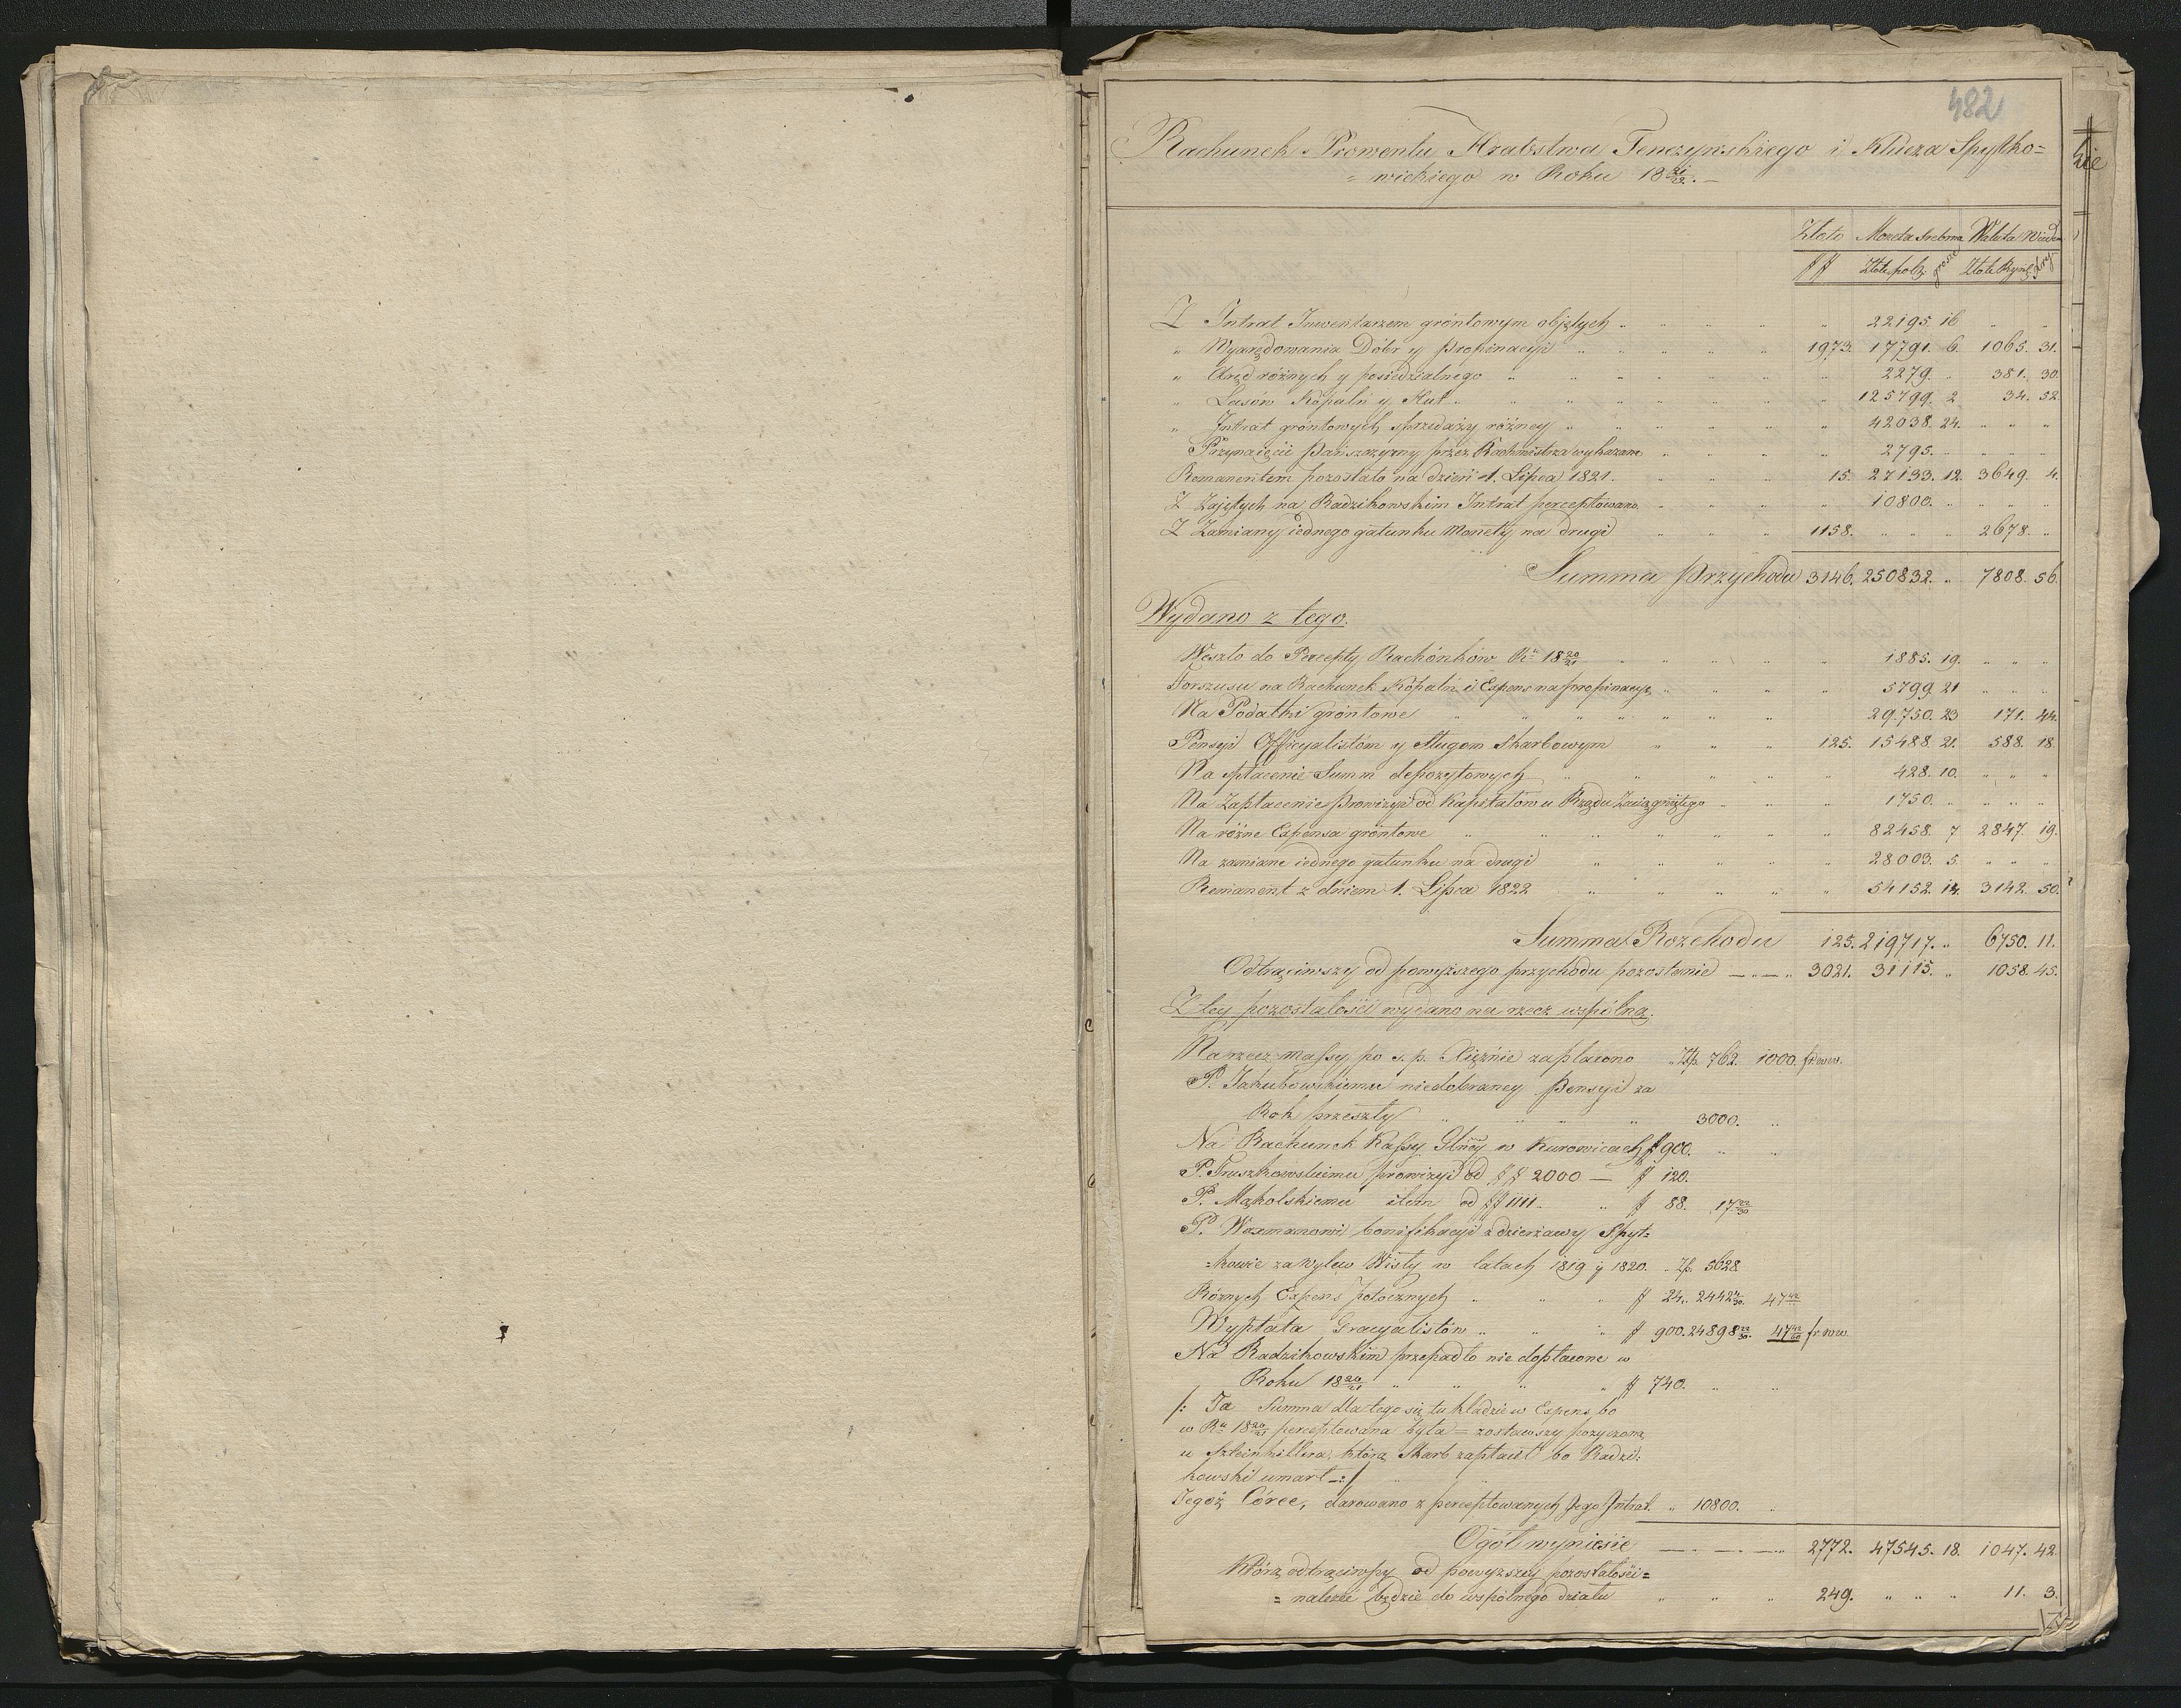 482
Rachunek Prowentu Hrabstwa Tenczynskiego i Klucza Spytko=
= wickiego w Roku 18 21/22. —
Złoto Moneta Srebrna Waluta Wiedeń
# # Złote pols. grosze Złote Ryńs. Xry
Z Intrat Inwentarzem gróntowym objętych " " " " " 22195. 16 " "
" Wyarędowania Dóbr y Propinacyi " " " " 1973. 17791. 6. 1065. 31.
" Aręd różnych y posiedzialnego " " " " " 2279. " 381. 30.
" Lasów Kopalń y Hut " " " " " 125799. 2 34. 52.
" Intrat gróntowych sprzedaży różney " " " " " 42038. 24. " " "
Przynaięcie Pańszczyzny przez Rachmistrza wykazane " " " " 2795. " " " "
Remanentem pozostało na dzień 1. Lipca 1821. " " " 15. 27133. 12. 3649. 4.
Z Zajętych na Radzikowskim Intrat perceptowano " " " " 10800. " " " "
Z Zamiany iednego gatunku Monety na drugi " " " 1158. " " " 2678. "
Summa Przychodu 3146. 250832. " 7808. 56.
Wydano z tego.
Weszło do Percepty Rachónków Ru 18 20/21 " " " " " 1885. 19. " " "
Forszusu na Rachunek Kopalń i Expens na propinacyę " " " " 5799. 21 " " "
Na Podatki gróntowe " " " " " " " 29.750. 23 171. 44.
Pensyi Officyalistóm y Sługom Skarbowym " " " 125. 15488. 21. 588. 18.
Na spłacenie Summ depozytowych " " " " " 428. 10. " " "
Na Zapłacenie Prowizyi od Kapitałów u Rządu Zaciągniętego " " " 1750. " " " "
Na różne Expensa gróntowe " " " " " " " 82458. 7 2847. 19.
Na zamianę iednego gatunku na drugi " " " " " 28003. 5. " " "
Remanent z dniem 1. Lipca 1822 " " " " " 54152. 14. 3142. 50.
Summa Rozchodu 125. 219717. " 6750. 11.
Odtrąciwszy od powyższego przychodu pozostanie — " — " 3021. 31115. " 1058. 45.
Z tey pozostałości wydano na rzecz wspólną.
Na rzecz massy po s. p. Xiężnie zapłacono " Złp. 762. 1000. fr. ww.
P. Jakubowskiemu niedobraney Pensyi za
Rok przeszły " " " " 3000. "
Na Rachunek Kassy Głney w Kurowicach # 900. " "
P. Truszkowskiemu prowizyi od # # 2000 — # 120.
P. Mąkolskiemu item od ## 1111. " # 88. 17 22/30
P. Waxmanowi bonifikacyi z dzierżawy Spyt=
=kowic za wylew Wisły w latach 1819 y 1820. " Zp. 5628
Róznych Expens potocznych " " " # 24. 2442 /30. 47 42
Wypłata Gracyalistów " " " # 900. 24898 22/30. 47 42/60 fr ww
Na Radzikowskim przepadło nie dopłacone w
Roku 18 20/21 " " " " # 740. " "
/: Ta Summa dla tego się tu kładzie w Expens bo
w Ru 18 20/21 perceptowana była = zostawszy pozyczoną
u Szteinkellera, którą Skarb zapłacił bo Radzi:
kowski umarł —:/ " "
Tegoż Córce, darowano z perceptowanych Jego Intrat. " 10800. "
Ogół wyniesie — " — " — " 2772. 47545. 18. 1047. 42.
Którą odtrąciwszy od powyższey pozostałości=
= należeć będzie do wspólnego działu " " " 249. " " " 11. 3.